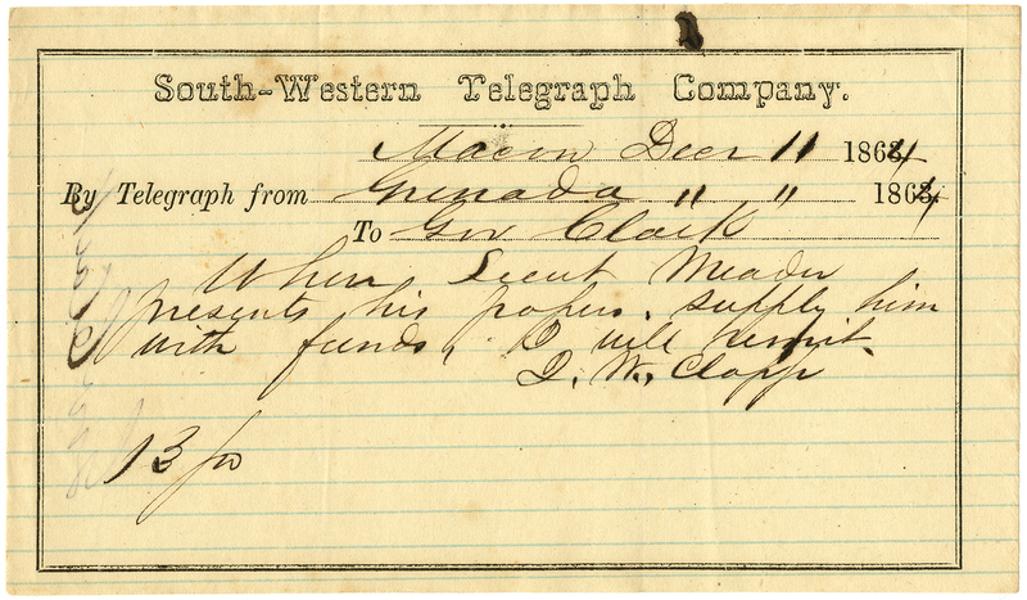 South-Western Telegraph Company.
Macon Decr 11 1864
By Telegraph from Grenada " " 1864
To Gov Clark
When Lieut Meader
presents his papers. supply him
with funds, I will remit.
J. W. Clapp
13